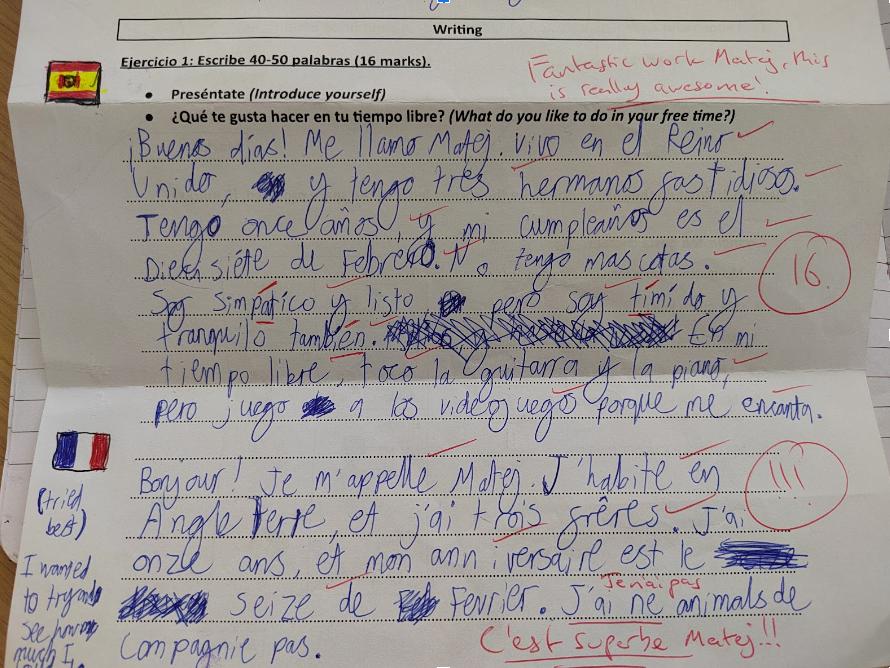 Writing
Ejercicio 1: Escribe 40-50 palabras (16 marks).
Fantastic work Matej, this
is really awesome!
• Preséntate (Introduce yourself)
• ¿Qué te gusta hacer en tu tiempo libre? (What do you like to do in your free time?)
¡Buenos días! Me llamo Matej. Vivo en el Reino
Unido, y tengo tres hermanos fastidiosos.
Tengo once años, y mi cumpleaños es el
Diecisiéte de Febrero. No tengo mascotas.
16
Soy simpático y listo pero soy tímido y
tranquilo también. En mi
tiempo libre, toco la guitarra y la piano,
pero juego a los videojuegos porque me encanta.
Bonjour! Je m'appelle Matej. J'habite en
!!!
Angleterre, et j'ai trois frêres. J'ai
onze ans, et mon anniversaire est le
Je n'ai pas
seize de Fevrier. J'ai ne animals de
compagnie pas.
C'est superbe Matej!!!
(tried
best)
I wanted
to try and
see how
much I